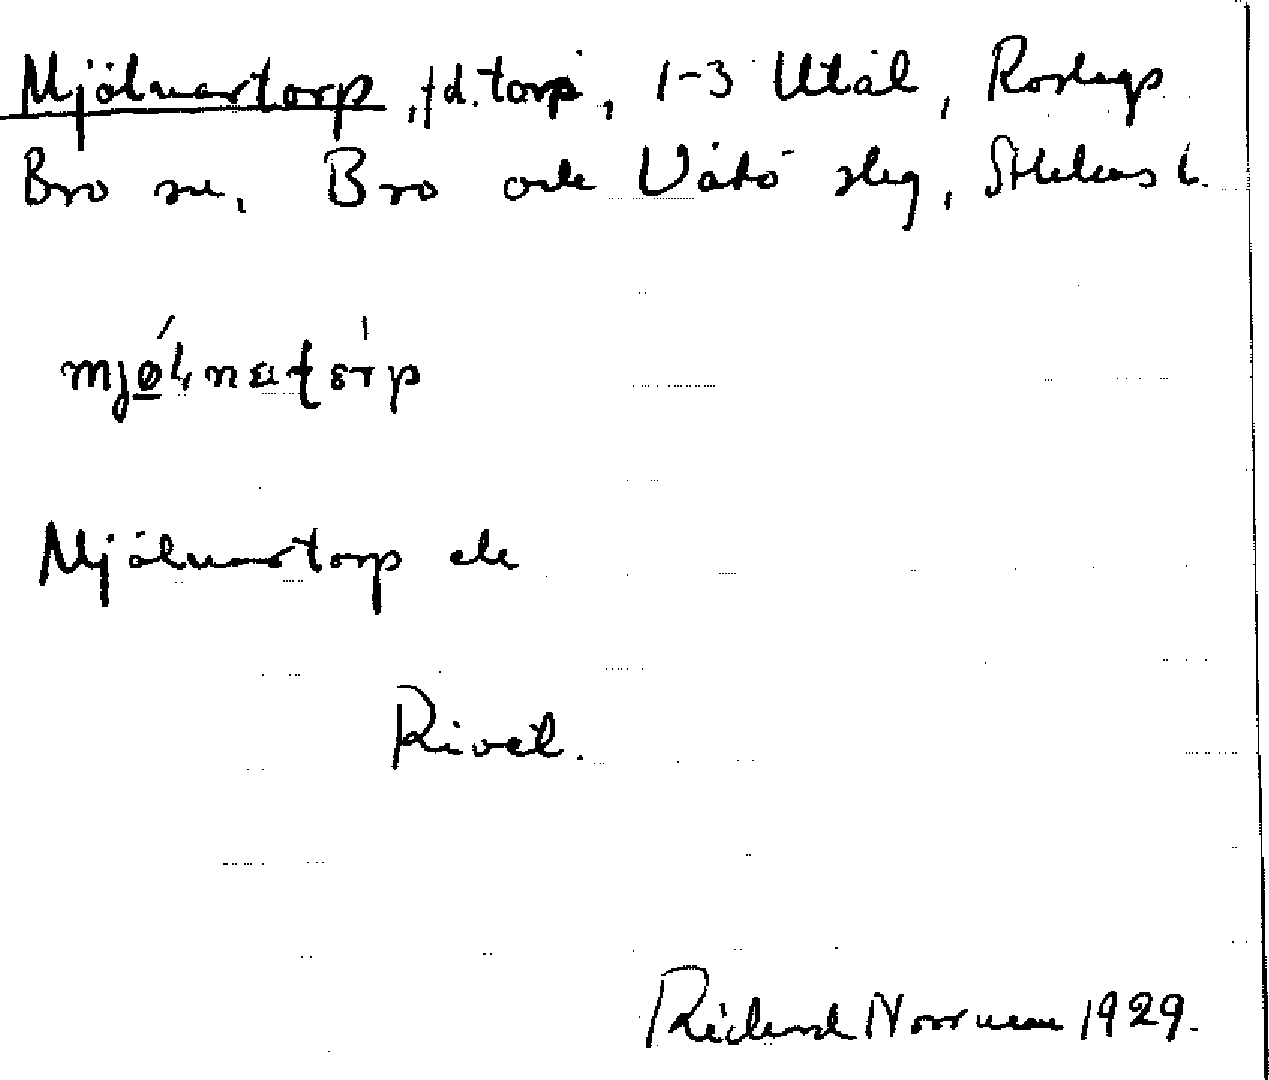 Mjölnartorp, f.d. torp, 1-3 Utål, Roslags
Bro sn, Bro och Vätö skg, Sthlms l.
Mjölnartorp ell
Rivet.
Richard Norrman 1929.